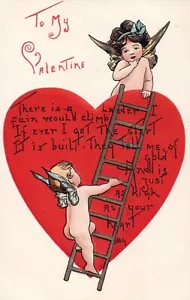 To My
Valentine
There is a Ladder I
fain would climb
If ever I get the start
It is built, They tell me, of
Gold
And is
just
as high
as your
heart